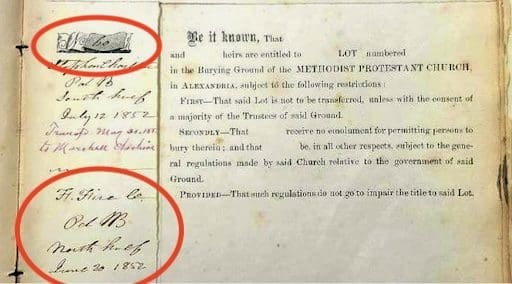 60
South half
July 12 1852
Transf. May
to Marshall
F. Fire Co.
North half
June 30 1852
Be it known, That
and heirs are entitled to LOT numbered
in the Burying Ground of the METHODIST PROTESTANT CHURCH,
in ALEXANDRIA, subject to the following restrictions:
FIRST—That said Lot is not to be transferred, unless with the consent of
a majority of the Trustees of said Ground.
SECONDLY—That receive no emolument for permitting persons to
bury therein; and that be, in all other respects, subject to the gene-
ral regulations made by said Church relative to the government of said
Ground.
PROVIDED—That such regulations do not go to impair the title to said Lot.